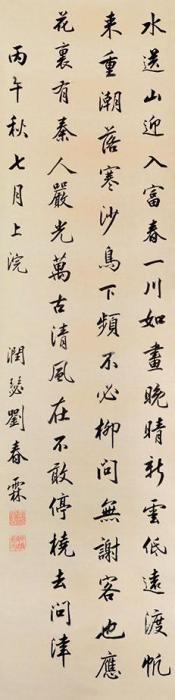 水送山迎入富春一川如畫晚晴新雲低遠渡帆
来重潮落寒沙鳥下頻不必柳間無謝客也應
花裏有秦人嚴光萬古清風在不敢停橈去問津
丙午秋七月上浣 潤琴劉春霖